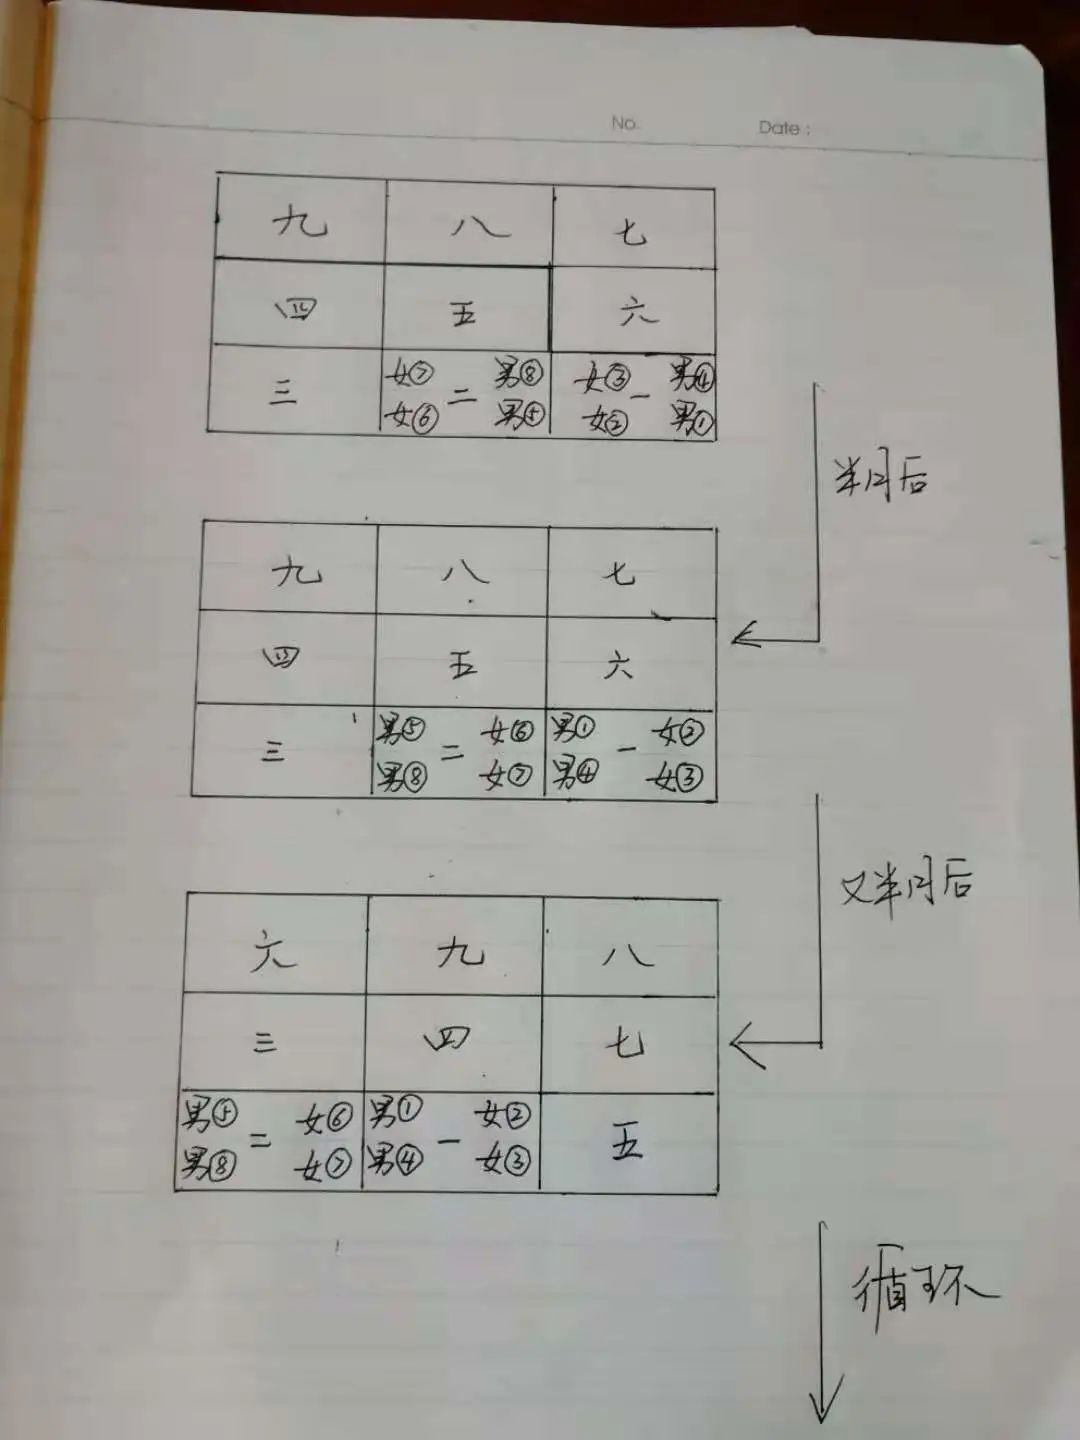 No.
Date :
九 八 七
四 五 六
三 女⑦ 二 男⑧ 女③ 一 男④
女⑥ 男⑤ 女② 男①
半月后
九 八 七
四 五 六
三 男⑤ 二 女⑥ 男① 一 女②
男⑧ 女⑦ 男④ 女③
又半月后
六 九 八
三 四 七
男⑤ 二 女⑥ 男① 一 女② 五
男⑧ 女⑦ 男④ 女③
循环